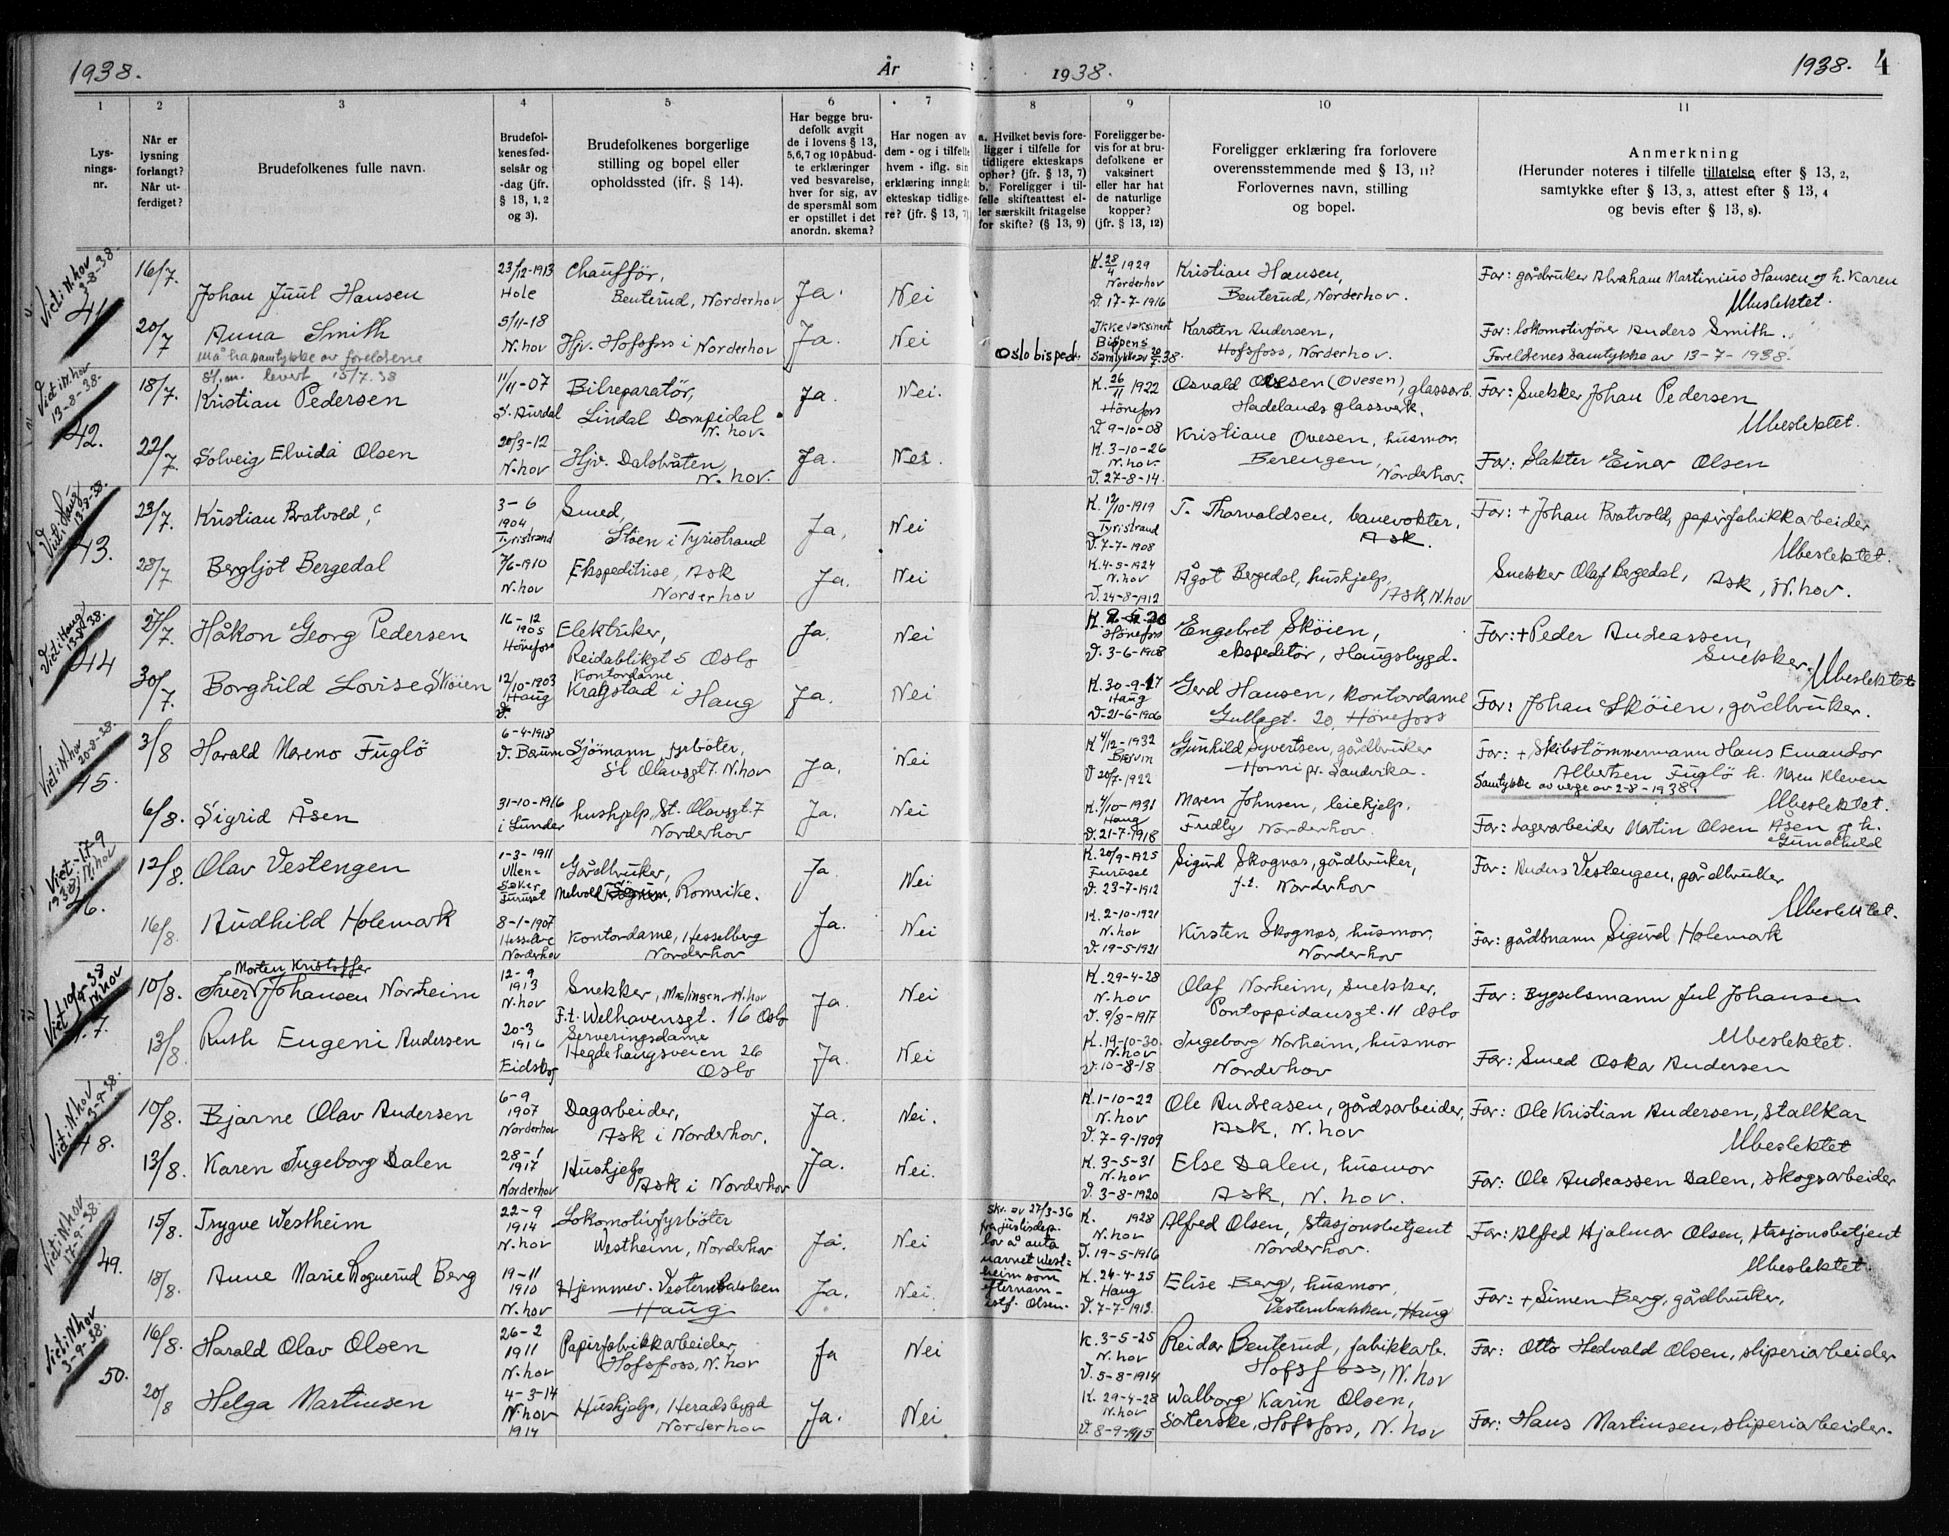 1938.
År
1938.
1938. 4
1 2 3 4 5 6 7 8 9 10 11
Lysningsnr.
Når er lysning forlangt? Når utferdiget?
Brudefolkenes fulle navn.
Brudefolkenes fødselsår og -dag (jfr. § 13, 1, 2 og 3).
Brudefolkenes borgerlige stilling og bopel eller opholdssted (ifr. § 14).
Har begge brudefolk avgit de i lovens § 13, 5, 6, 7 og 10 påbudte erklæringer ved besvarelse, hver for sig, av de spørsmål som er opstillet i det anordn. skema?
Har nogen av dem - og i tilfelle hvem - iflg. sin erklæring inngått ekteskap tidligere? (jfr. § 13, 7)
a. Hvilket bevis foreligger i tilfelle for tidligere ekteskaps ophør? (jfr. § 13, 7)
b. Foreligger i tilfelle skifteattest eller særskilt fritagelse for skifte? (§ 13, 9)
Foreligger bevis for at brudefolkene er vaksinert eller har hat de naturlige kopper? (jfr. § 13, 12)
Foreligger erklæring fra forlovere overensstemmende med § 13, 11? Forlovernes navn, stilling og bopel.
Anmerkning
(Herunder noteres i tilfelle tillatelse efter § 13, 2, samtykke efter § 13, 3, attest efter § 13, 4 og bevis efter § 13, 8).
Viet i N.hov 3-8-38
41
16/7. Johan Juul Hansen 23/12-1913 Hole Chaufför, Benterud, Norderhov Ja. Nei K. 28/4 1929 Norderhov V. 17-7-1916 Kristian Hansen, Benterud, Norderhov. Far: gårdbruker Abraham Martinius Hansen og h. Karen
Ubeslektet.
20/7 Anna Smith 5/11-18 N.hov Hjv. Hofsfoss i Norderhov Ja. Nei Oslo bisped. Ikke vaksinert Bispens samtykke av 20/7.38. Karsten Andersen, Hofsfoss, Norderhov. Far: lokomotivförer Anders Smith.
må ha samtykke av foreldrene
levert 15/7.38
Foreldrenes samtykke av 13-7-1938.
Viet i N.hov 13-8-38.
42.
18/7. Kristian Pedersen 11/11-07 S. Aurdal Bilreparatör, Lindal Dompidal N.hov. Ja. Nei. K. 26/11 1922 Hönefoss V. 9-10-08 Osvald Olsen (Ovesen), glassarb. Hadelands glassverk. Far: Snekker Johan Pedersen
Ubeslektet.
22/7. Solveig Elvida Olsen 20/3-12 N.hov Hjv. Dalsbråten, N. hov. Ja. Nei. K. 3-10-26 N.hov. V. 27-8-14. Kristiane Ovesen, husmor. Berengen, Norderhov. Far: Slakter Einar Olsen
Viet i Haug 13-8-38.
43.
23/7. Kristian Bratvold, 3-6 1904 Tyristrand Smed, Stöen i Tyristrand Ja. Nei K. 12/10-1919 Tyristrand V. 7-7-1908 T. Thorvaldsen, banevokter, Ask. Far: + Johan Bratvold, papirfabrikkarbeider
Ubeslektet.
28/7 Bergljot Bergedal 7/6-1910 N.hov Ekspeditrise, Ask Norderhov Ja. Nei K. 4-5-1924 N.hov V. 24-8-1912 Ågot Bergedal, hushjelp, Ask, N.hov Snekker Olaf Bergedal, Ask, N.hov.
Viet i Haug 13-8-38.
44
27/7. Håkon Georg Pedersen 16-12 1905 Hönefoss Elektriker, Reidablikgt 5 Oslo Ja. Nei Hönefoss V. 3-6-1908 Engebret Sköien, ekspeditör, Haugsbygd. Far: + Peder Andreassen, Snekker.
Ubeslektet
30/7. Borghild Lovise Sköien 12/10-1903 Haug Kontordame Kragstad i Haug Ja. Nei K. 30-9-17 Haug V. 21-6-1906 Gerd Hansen, kontordame Gullagt. 20 Hönefoss Far: Johan Sköien, gårdbruker.
Viet i N.hov 20-8-38.
45.
3/8 Harald Moreno Fuglö 6-4-1918 V. Bærum Sjömann, fyrböter, St Olavsgt 7. N.hov Ja. Nei K 4/12-1932 Bærum V 20/7-1922 Gunhild Syvertsen, gårdbruker pr. Sandvika. Far: + Skibstömmermann Hans Emandor Albertsen Fuglö h. Maren Kleven
Samtykke av verge av 2-8-1938.
Ubeslektet.
6/8. Sigrid Åsen 31-10-1916 i Lunder hushjelp, St. Olavsgt. 7 Norderhov Ja. Nei K. 4/10-1931 Haug V. 21-7-1918 Maren Johnsen, leiehjelp, Fredly Norderhov. Far: Lagerarbeider Martin Olsen Åsen og h. Gundhild
Viet 17-9 1938 i N.hov
46.
12/8. Olav Vestengen 1-3-1911 Ullensaker Furuset Gårdbruker, Romerike. Ja. Nei K. 20/9-1925 Furuset V. 23-7-1912 Sigurd Skognæs, gårdbruker, f.t. Norderhov Far: Anders Vestengen, gårdbruker
Ubeslektet.
16/8. Audhild Holemark 8-1-1907 Norderhov Kontordame, Hesselberg Norderhov Ja. Nei K. 2-10-1921 N.hov V. 19-5-1921 Kirsten Skognæs, husmor, Norderhov Far: gårdsmann Sigurd Holemark
Viet 10/9-38 i N.hov
47.
Morten Kristoffer
10/8. Iver Johansen Norheim 12-9 1913 N.hov Snekker, N.hov F.t. Welhavensgt. 16 Oslo Ja. Nei K. 29-4-28 N.hov V. 9/8-1917 Olaf Norheim, snekker, Pontoppidansgt. 11 Oslo Far: Bygselsmann Jul Johansen
Ubeslektet.
13/8. Ruth Eugeni Andersen 20-3 1916 Eidskog Serveringsdame Hegdehaugsveien 26 Oslo Ja. Nei K. 19-10-30. N.hov V. 10-8-18 Ingeborg Norheim, husmor Norderhov Far: Smed Oskar Andersen
Viet i N.hov 3-9-38.
48.
10/8. Bjarne Olav Andersen 6-9 1907 Norderhov Dagarbeider, Ask i Norderhov. Ja. Nei. K. 1-10-22 N.hov V. 7-9-1909 Ole Andreasen, gårdsarbeider, Ask, N.hov Far: Ole Kristian Andersen, stallkar
Ubeslektet
13/8. Karen Ingeborg Dalen 28-1 1917 Norderhov Hushjelp Ask i Norderhov Ja. Nei. K. 3-5-31 N.hov V. 3-8-1920 Else Dalen, husmor Ask, N. hov. Far: Ole Andreassen Dalen, skogsarbeider
Viet i N.hov 17-9-38.
49.
15/8. Trygve Westheim 22-9 1914 N.hov Lokomotivfyrböter Westheim, Norderhov Ja. Nei Skr. av 27/3-36 fra justisdep. lov å anta navnet Westheim som efternavn istf. Olsen. K. 1928 N.hov V. 19-5-1916 Alfred Olsen, stasjonsbetjent Norderhov. Far: Alfred Hjalmar Olsen, stasjonsbetjent
Ubeslektet.
18/8. Anne Marie Rognerud Berg 19-11 1910 N.hov Hjemmev. Vesternbakken Haug Ja. Nei. K. 24-4-25 Haug V. 7-7-1912. Elise Berg, husmor, Vesternbakken, Haug Far: + Simen Berg, gårdbruker,
Viet i N.hov 3-9-38.
50.
16/8. Harald Olav Olsen 26-2 1911 N.hov Papirfabrikkarbeider, Hofsfoss, N.hov Ja Nei K. 3-5-25 N.hov V. 5-8-1914 Reidar Benterud, fabikkarb. Hofsfoss, N.hov Far: Otto Hedvald Olsen, sliperiarbeider
20/8 Helga Martinsen 4-3-14 N.hov 1914 Hushjelp, Heradsbygd Norderhov Ja. Nei K. 29-4-28 N.hov V. 8-9-1915 Walborg Karin Olsen, Hofsfoss, N.hov Far: Hans Martinsen, sliperiarbeider.